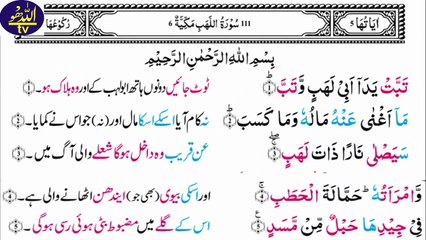 اللہ ھو TV
اٰیَاتُهَا ٥ ١١١ سُوْرَةُ اللَّهَبِ مَكِّيَّةٌ ٦ رُكُوْعُهَا
بِسْمِ اللهِ الرَّحْمٰنِ الرَّحِيْمِ
تَبَّتْ يَدَاۤ اَبِیْ لَهَبٍ وَّتَبَّ ١ ٹوٹ جائیں دونوں ہاتھ ابولہب کے اور وہ ہلاک ہو۔ ١
مَاۤ اَغْنٰی عَنْهُ مَالُهٗ وَمَا كَسَبَ ٢ نہ کام آیا اسکے اسکا مال اور (نہ) جو اس نے کمایا۔ ٢
سَيَصْلٰی نَارًا ذَاتَ لَهَبٍ ٣ عن قریب وہ داخل ہوگا شعلے والی آگ میں۔ ٣
وَّامْرَاَتُهٗ حَمَّالَةَ الْحَطَبِ ٤ اور اسکی بیوی (بھی جو) ایندھن اٹھانے والی ہے۔ ٤
فِیْ جِيْدِهَا حَبْلٌ مِّنْ مَّسَدٍ ٥ اس کے گلے میں مضبوط بٹی ہوئی رسی ہوگی۔ ٥